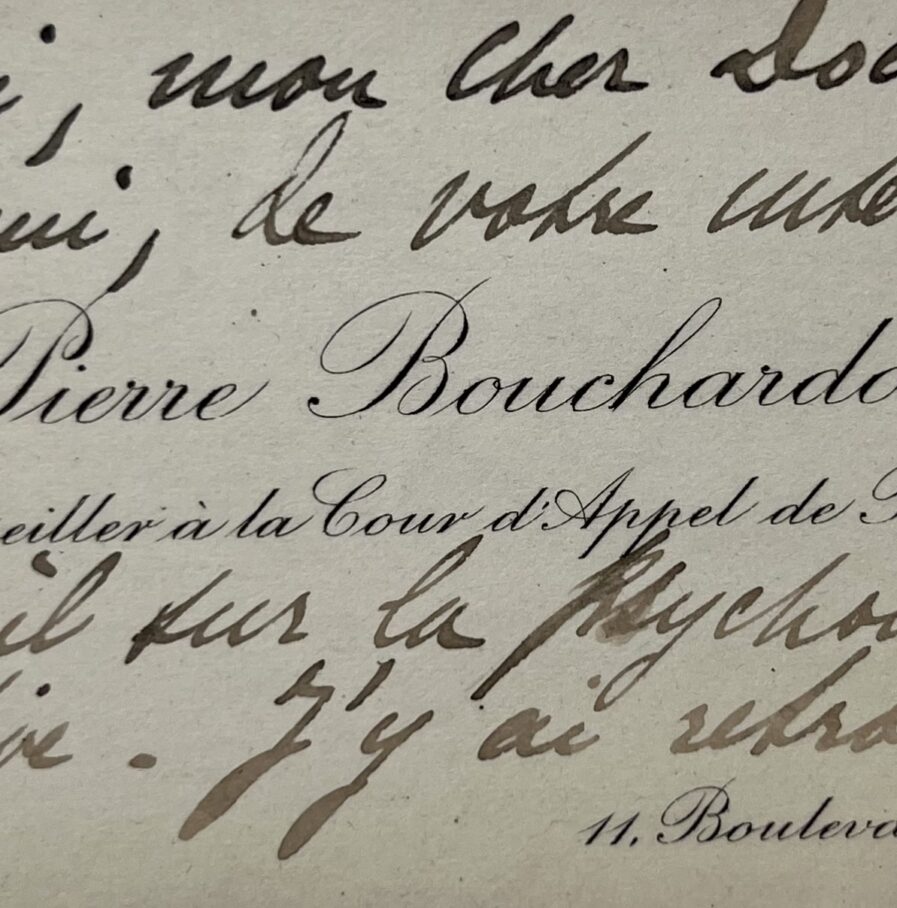 i, mon cher Doc
ui, de votre inte
Pierre Bouchardo
eiller à la Cour d'Appel de P
il sur la psycho
ive. J'y ai retro
11, Bouleva